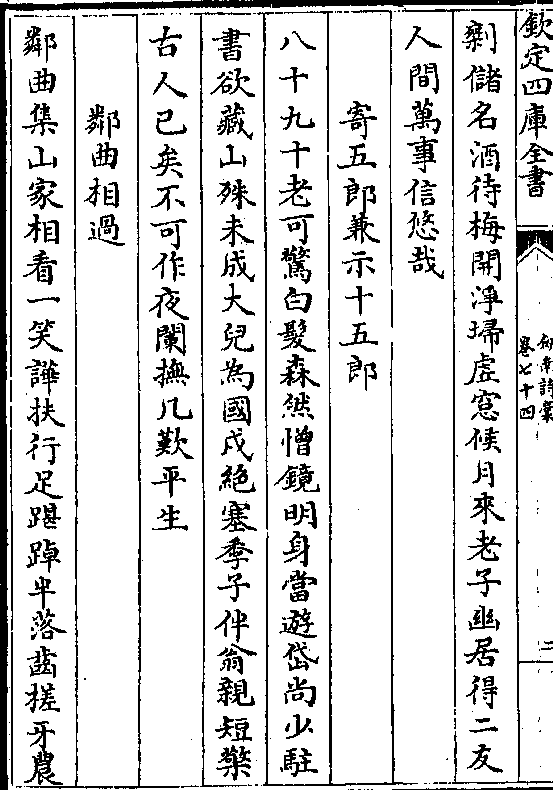 欽定四庫全書
劍南詩藁
卷七十四
二
剩儲名酒待梅開淨埽虚窓候月來老子幽居得二友
人間萬事信悠哉
寄五郎兼示十五郎
八十九十老可驚白髮森然憎鏡明身當遊岱尚少駐
書欲藏山殊未成大兒為國戍絶塞季子伴翁親短檠
古人已矣不可作夜闌撫几歎平生
鄰曲相過
鄰曲集山家相看一笑譁扶行足踸踔半落齒槎牙農